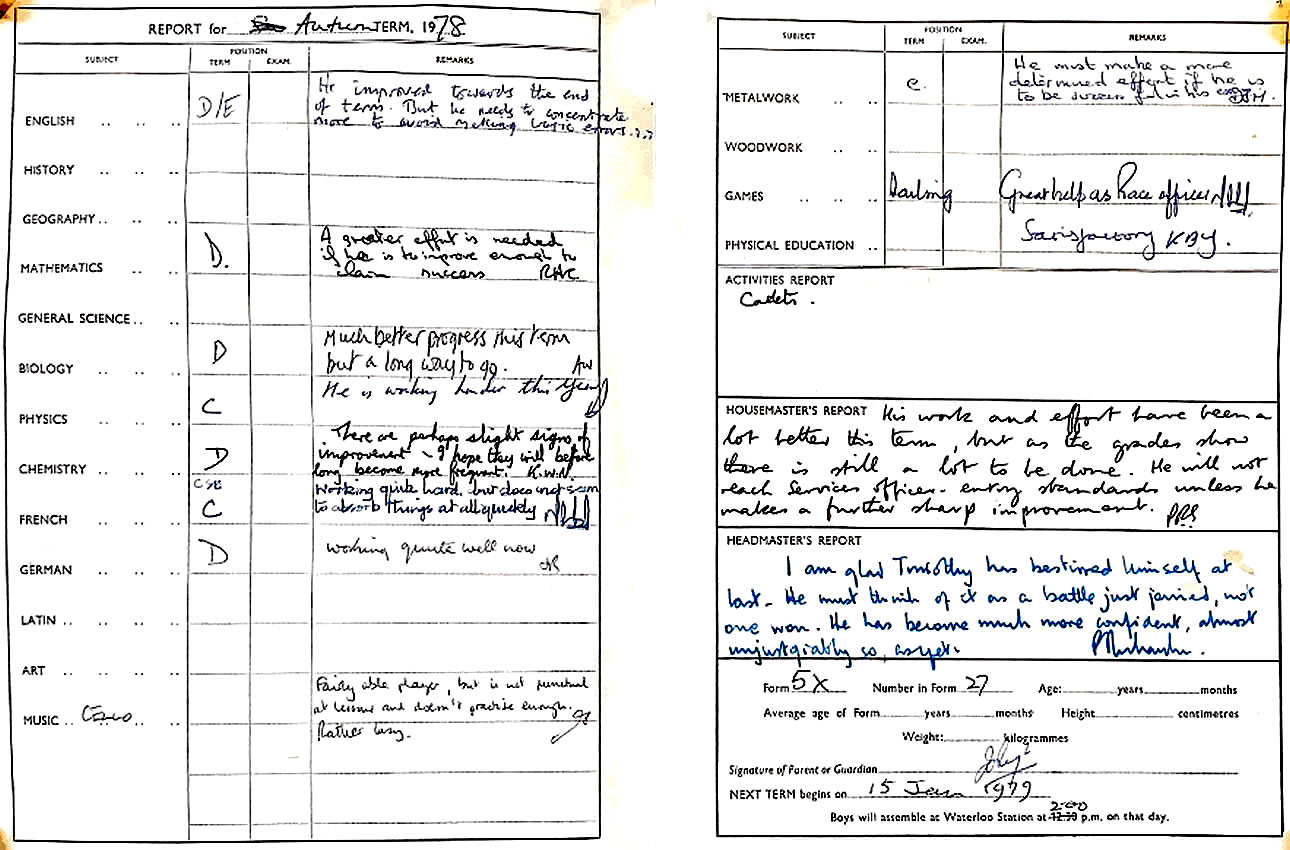 REPORT for Autumn TERM, 1978
SUBJECT
POSITION
TERM EXAM.
REMARKS
ENGLISH .. .. .. D/E He improved towards the end
of term. But he needs to concentrate
more to avoid making basic errors.
HISTORY .. .. ..
GEOGRAPHY .. .. ..
MATHEMATICS .. .. D. A greater effort is needed
if he is to improve enough to
claim success RHC
GENERAL SCIENCE .. ..
BIOLOGY .. .. .. D Much better progress this term
but a long way to go. AW
PHYSICS .. .. .. C He is working harder this year
CHEMISTRY .. .. .. D There are perhaps slight signs of
improvement - I hope they will before
long become more frequent. K.W.N.
CSE
FRENCH .. .. .. C Working quite hard, but does not seem
to absorb things at all quickly
GERMAN .. .. .. D Working quite well now
LATIN .. .. .. ..
ART .. .. ..
MUSIC .. .. .. Fairly able player, but is not punctual
at lessons and doesn't practise enough.
Rather lazy.
SUBJECT
POSITION
TERM EXAM.
REMARKS
METALWORK .. .. C. He must make a more
determined effort if he is
to be successful in his
WOODWORK .. ..
GAMES .. .. .. Sailing Great help as Race officer
PHYSICAL EDUCATION .. Satisfactory KBY.
ACTIVITIES REPORT
Cadets.
HOUSEMASTER'S REPORT His work and effort have been a
lot better this term, but as the grades show
there is still a lot to be done. He will not
reach Services officer-entry standards unless he
makes a further sharp improvement. PRS
HEADMASTER'S REPORT
I am glad Timothy has bestirred himself at
last. He must think of it as a battle just joined, not
one won. He has become much more confident, almost
unjustifiably so, as yet.
Form 5X Number in Form 27 Age: years months
Average age of Form years months Height centimetres
Weight: kilogrammes
Signature of Parent or Guardian
NEXT TERM begins on 15 Jan 1979
2.00
Boys will assemble at Waterloo Station at 12.30 p.m. on that day.